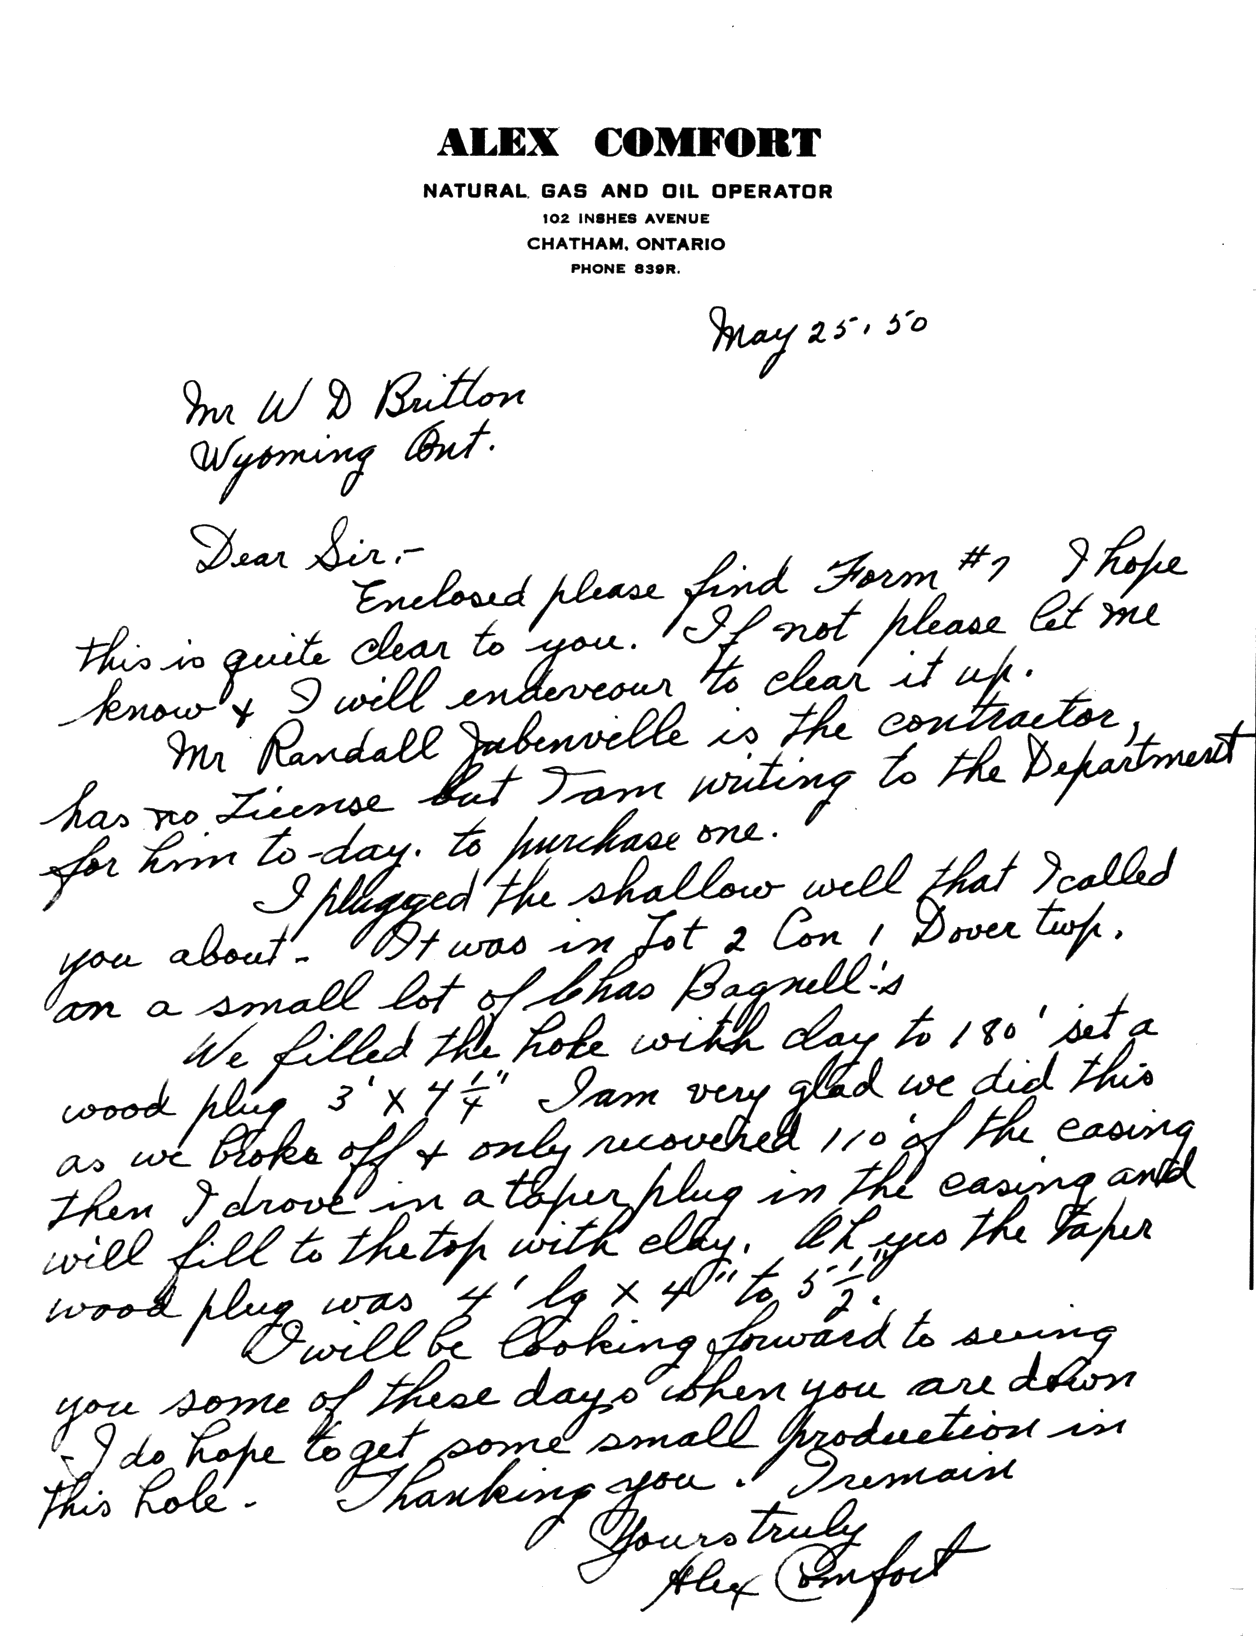 ALEX COMFORT
NATURAL GAS AND OIL OPERATOR
102 INSHES AVENUE
CHATHAM, ONTARIO
PHONE 839R.
May 25, 50
Mr W D Britton
Wyoming Ont.
Dear Sir:-
Enclosed please find Form #7 I hope
this is quite clear to you. If not please let me
know & I will endeveour to clear it up.
Mr Randall Jubenville is the contractor,
has no License but I am writing to the Department
for him to-day. to purchase one.
I plugged the shallow well that I called
you about - It was in Lot 2 Con 1 Dover twp.
on a small lot of Chas Bagnell's
We filled the hole with clay to 180' set a
wood plug 3' x 4 1/4" I am very glad we did this
as we broke off & only recovered 110' of the casing
then I drove in a taper plug in the casing and
will fill to the top with clay. Oh yes the taper
wood plug was 4' lg x 4" to 5 1/2".
I will be looking forward to seeing
you some of these days when you are down
- I do hope to get some small production in
this hole - Thanking you. I remain
Yours truly
Alex Comfort